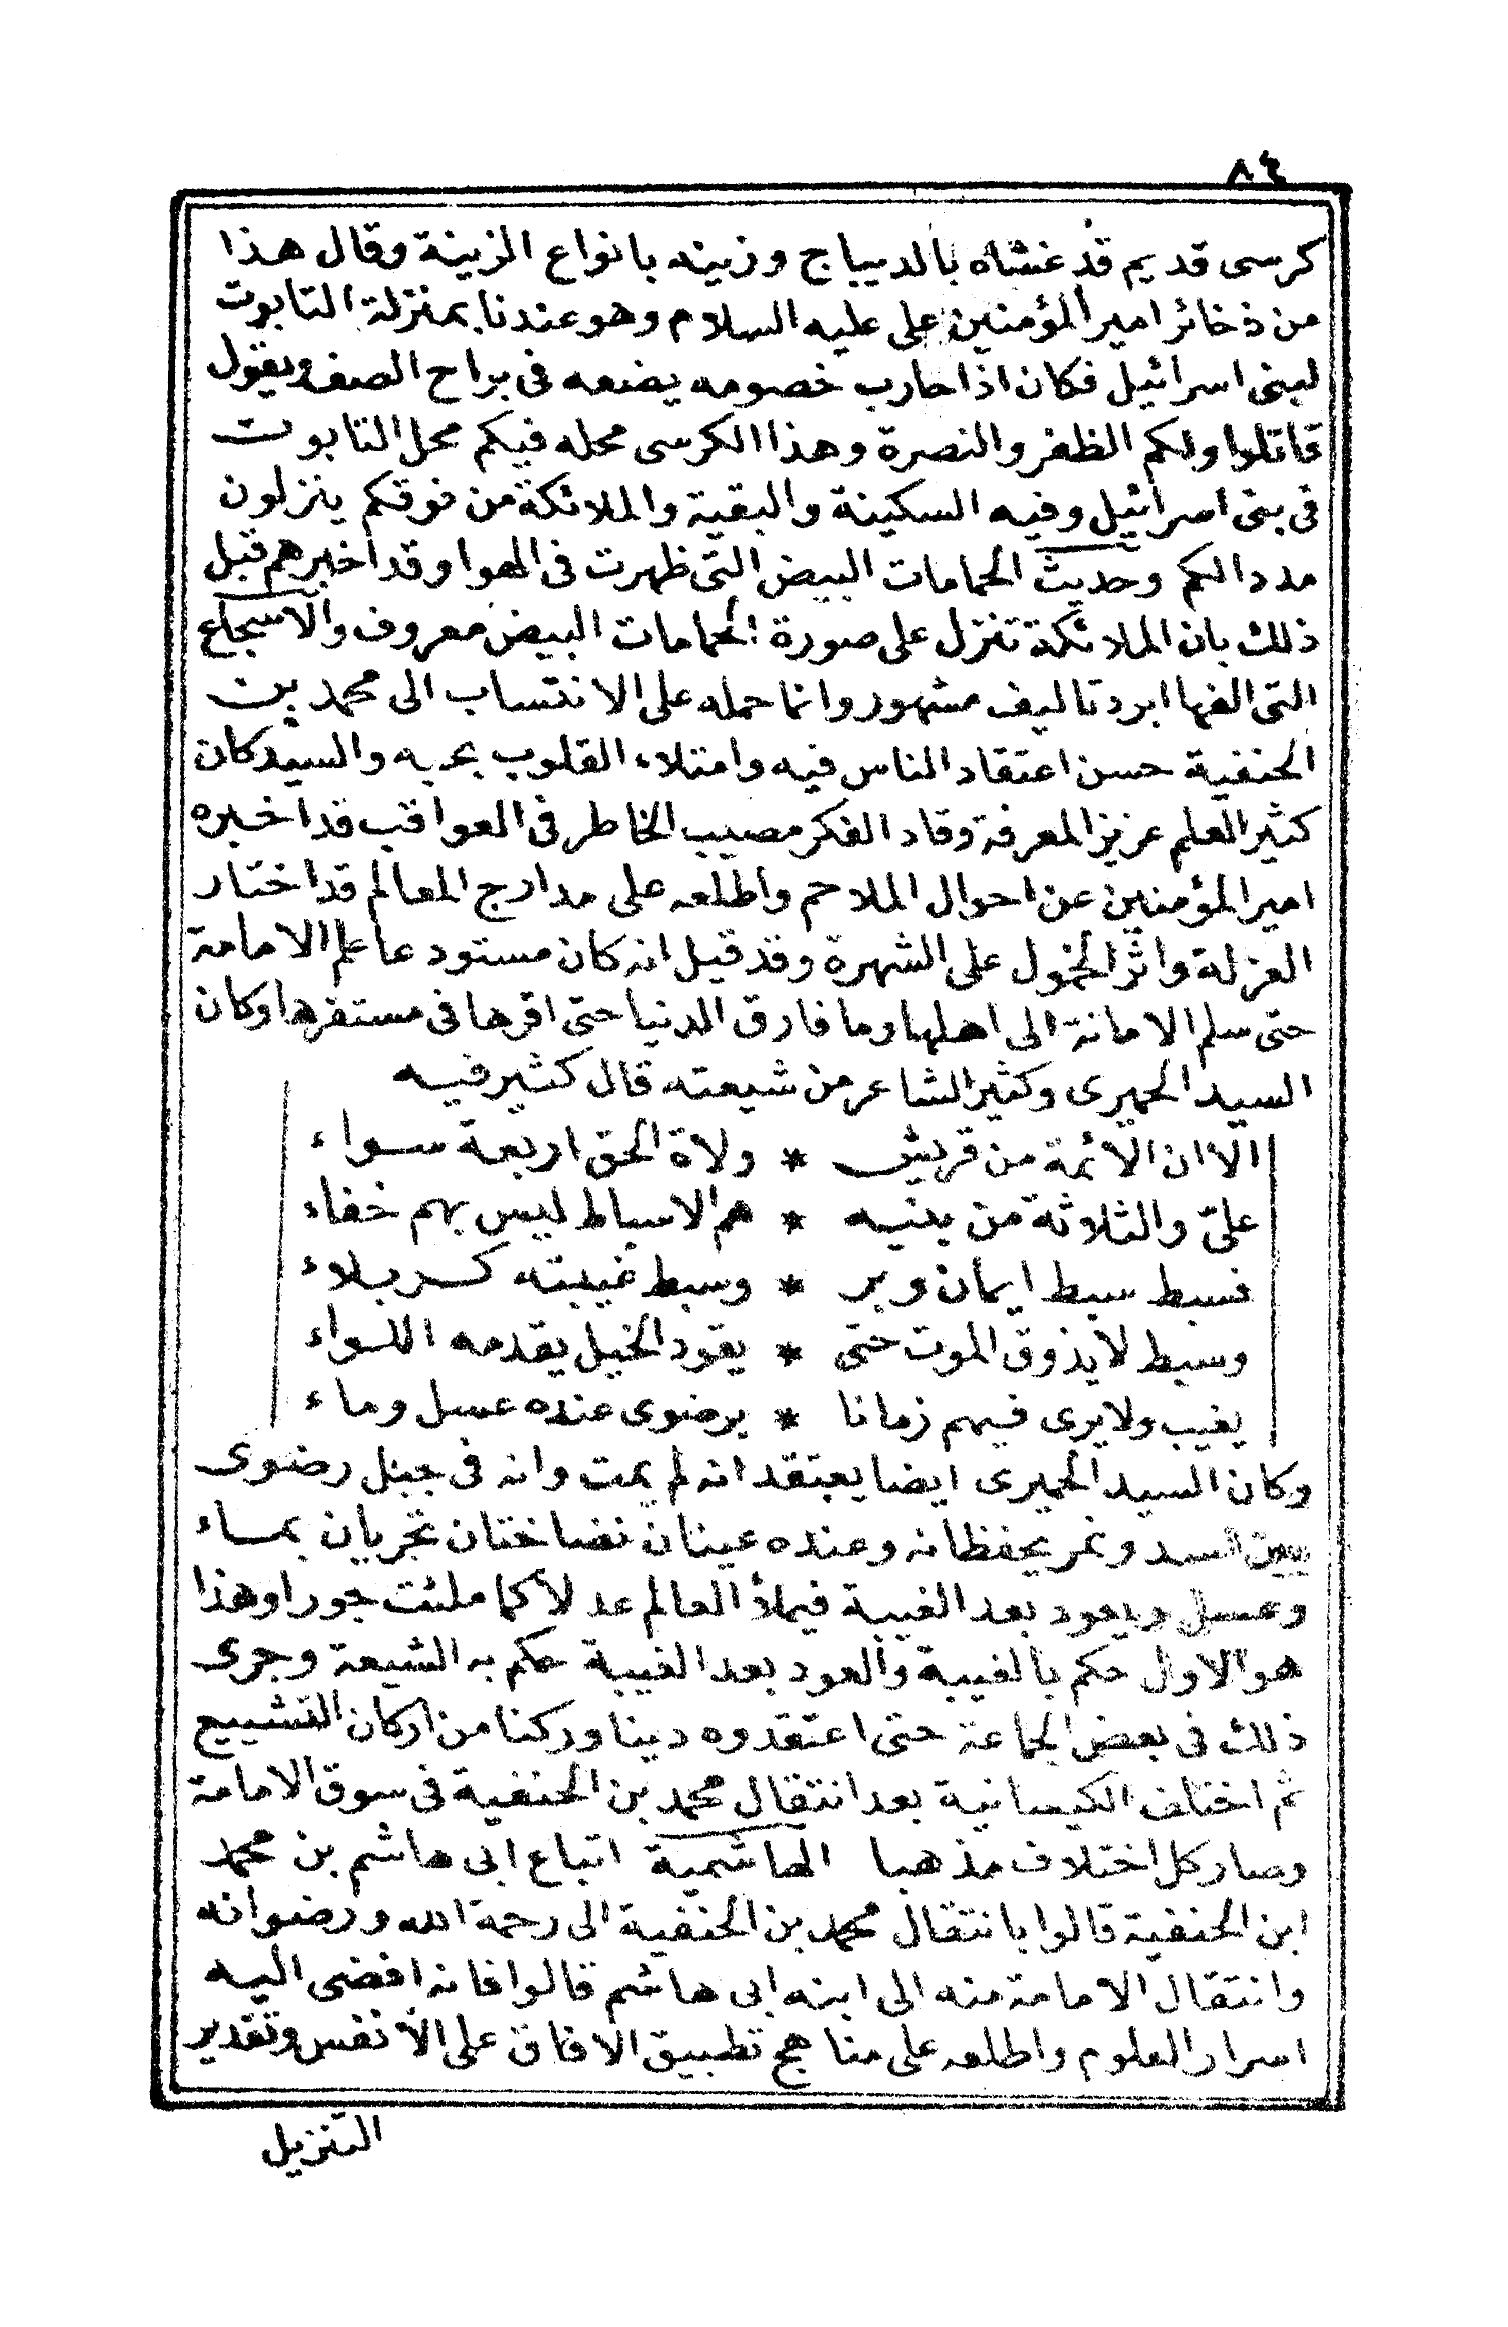 ٨٤
كرسى قديم قد غشاه بالديباج وزينه بانواع الزينة وقال هذا
من ذخائر امير المؤمنين على عليه السلام وهو عندنا بمنزلة التابوت
لبنى اسرائيل فكان اذا حارب خصومه يضعه فى براح الصف ويقول
قاتلوا ولكم الظفر والنصرة وهذا الكرسى محله فيكم محل التابوت
فى بنى اسرائيل وفيه السكينة والبقية والملائكة من فوقكم ينزلون
مددا لكم وحديث الحمامات البيض التى ظهرت فى الهوا وقد اخبرهم قبل
ذلك بان الملائكة تنزل على صورة الحمامات البيض معروف والاسجاع
التى الفها ابرد تاليف مشهور وانما حمله على الانتساب الى محمد بن
الحنفية حسن اعتقاد الناس فيه وامتلاء القلوب بحبه والسيد كان
كثير العلم عزيز المعرفة وقاد الفكر مصيب الخاطر فى العواقب قد اخبره
امير المؤمنين عن احوال الملاحم واطلعه على مدارج المعالم قد اختار
العزلة واثر الخمول على الشهرة وقد قيل انه كان مستودعا علم الامامة
حتى سلم الامانة الى اهلها وما فارق الدنيا حتى اقرها فى مستقرها وكان
السيد الحميرى وكثير الشاعر من شيعته قال كثير فيه
الا ان الائمة من قريش * ولاة الحق اربعة سواء
علىّ والثلاثة من بنيه * هم الاسباط ليس بهم خفاء
فسبط سبط ايمان وبر * وسبط غيبته كربلاء
وسبط لا يذوق الموت حتى * يقود الخيل يقدمه اللواء
يغيب ولا يرى فيهم زمانا * برضوى عنده عسل وماء
وكان السيد الحميرى ايضا يعتقد انه لم يمت وانه فى جبل رضوى
بين اسد ونمر يحفظانه وعنده عينان نضاختان تجريان بماء
وعسل ويعود بعد الغيبة فيملأ العالم عدلا كما ملئت جورا وهذا
هو الاول حكم بالغيبة والعود بعد الغيبة حكم به الشيعة وجرى
ذلك فى بعض الجماعة حتى اعتقدوه دينا وركنا من اركان التشييع
ثم اختلف الكيسانية بعد انتقال محمد بن الحنفية فى سوق الامامة
وصار كل اختلاف مذهبا الهاشمية اتباع ابى هاشم بن محمد
ابن الحنفية قالوا بانتقال محمد بن الحنفية الى رحمة الله ورضوانه
وانتقال الامامة منه الى ابنه ابى هاشم قالوا فانه افضى اليه
اسرار العلوم واطلعه على مناهج تطبيق الافاق على الأنفس وتقدير
التنزيل